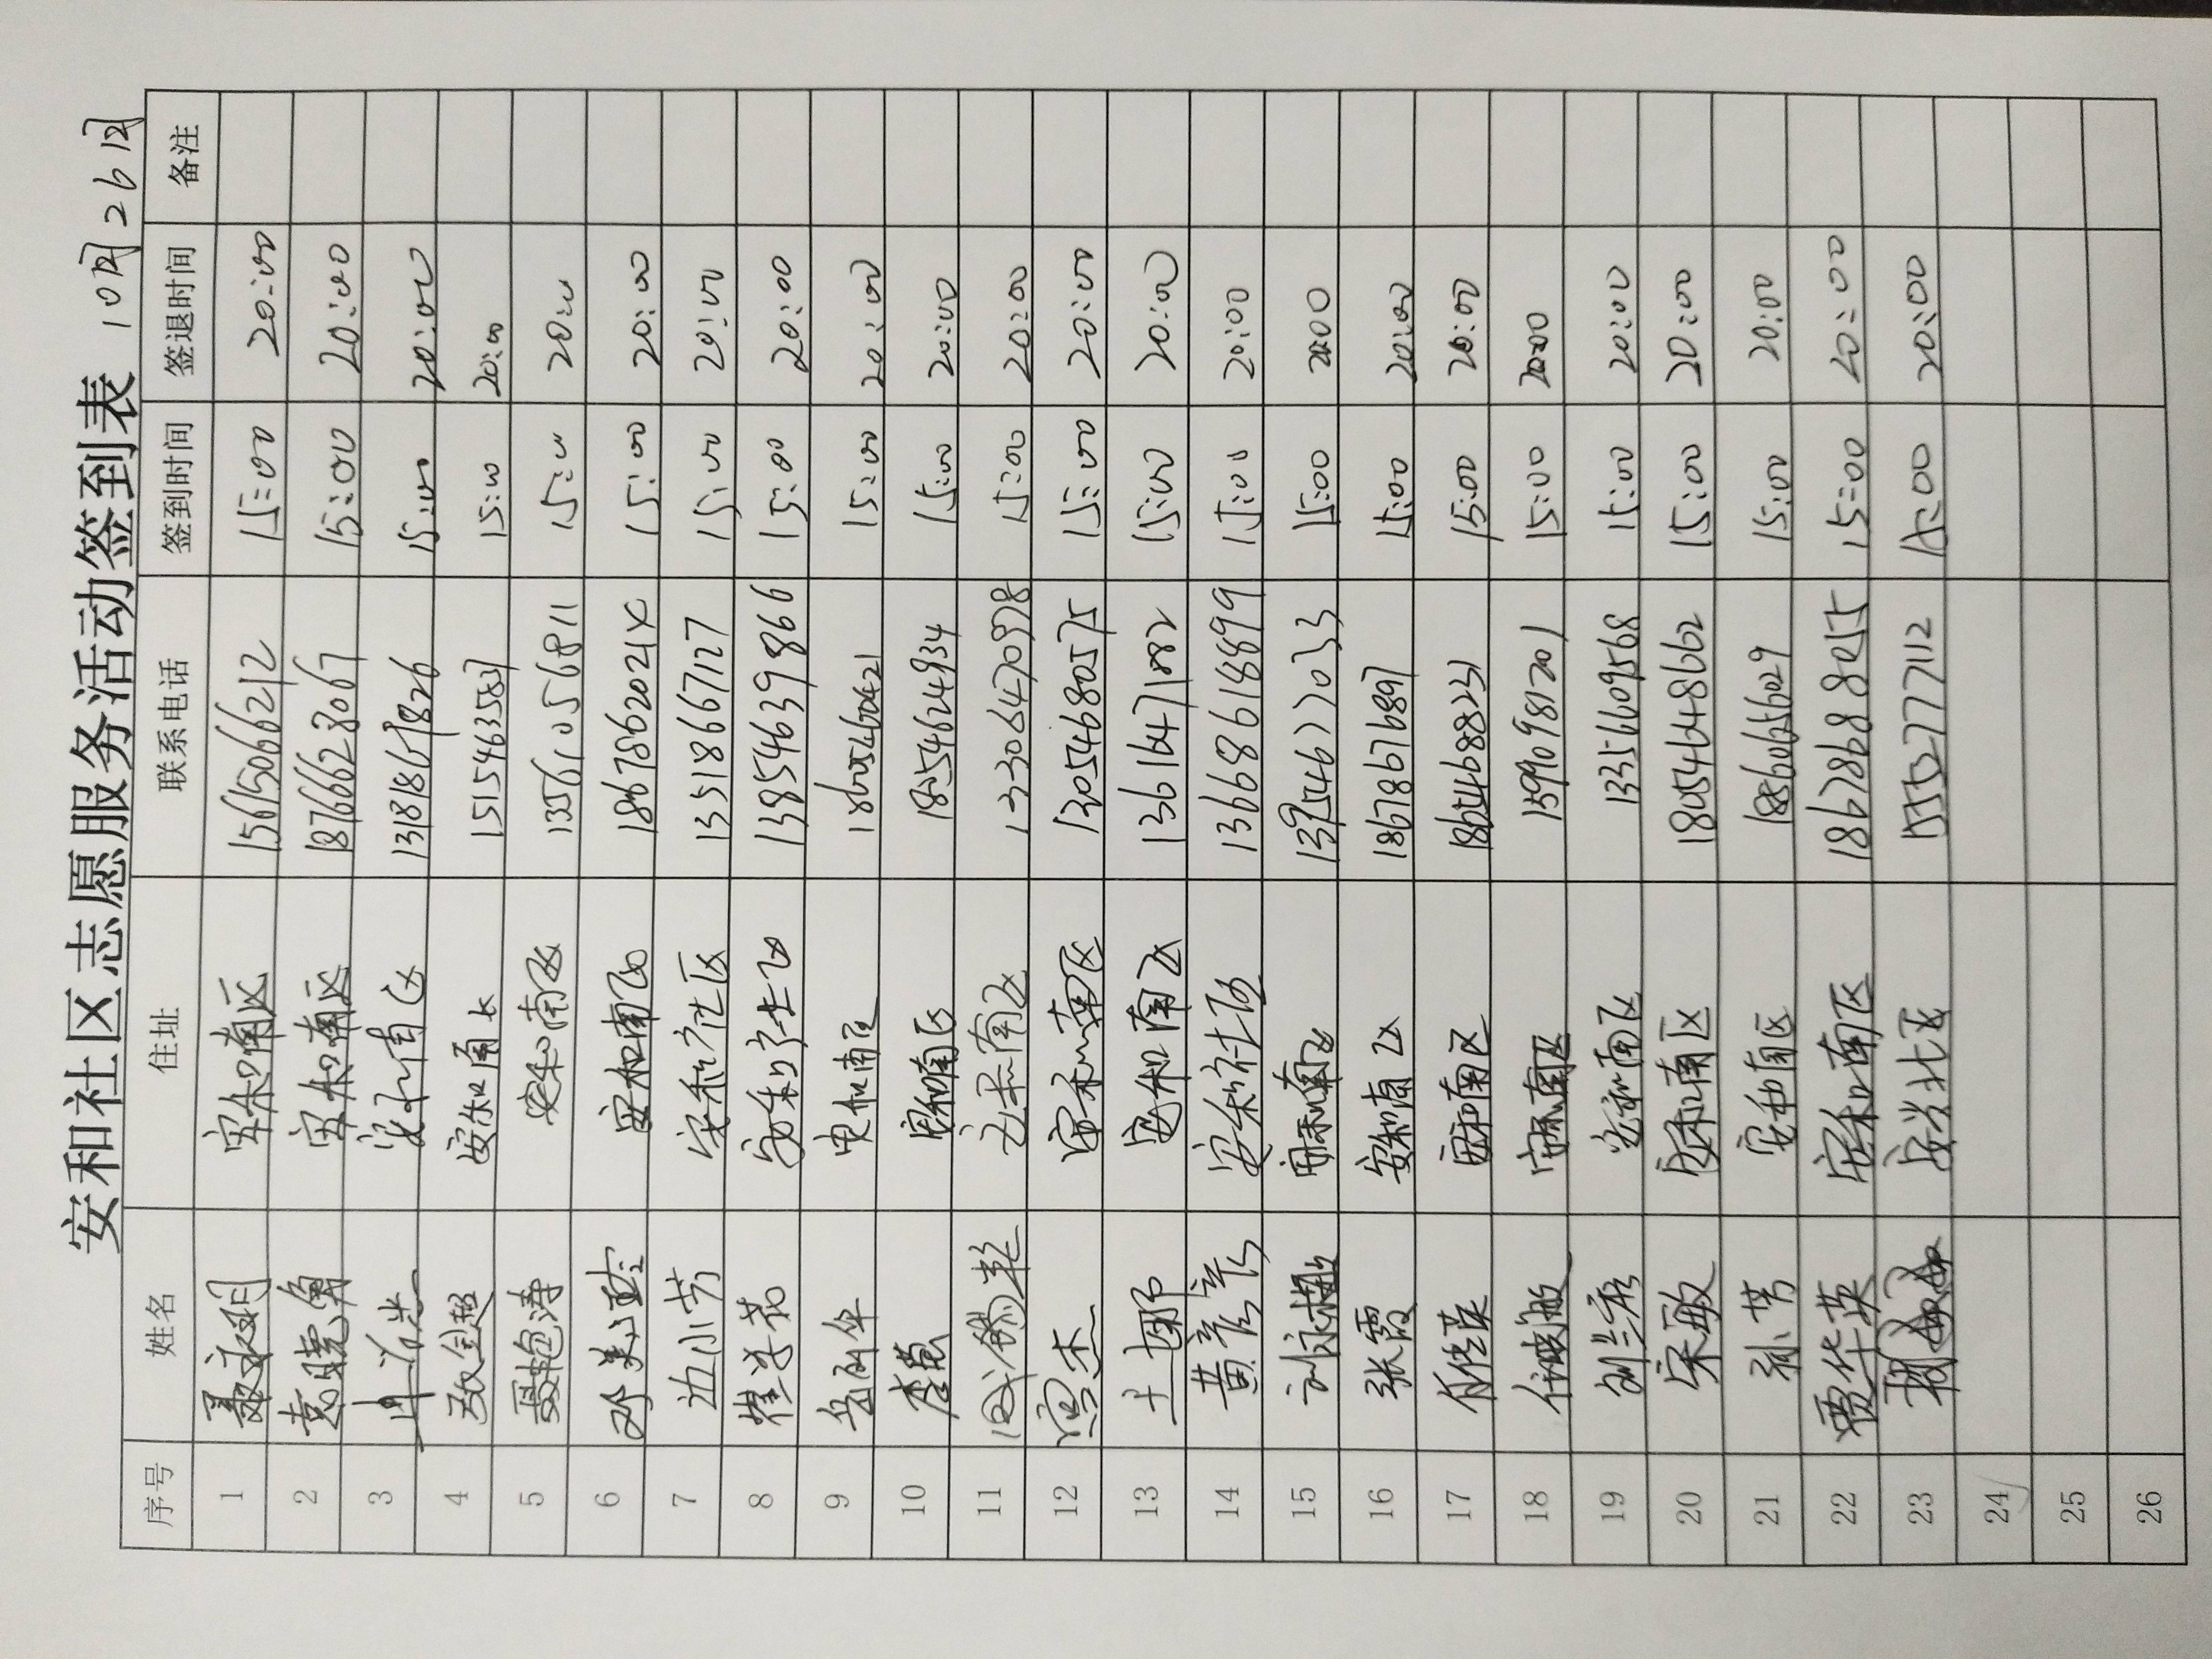 安和社区志愿服务活动签到表 10月26日
序号 姓名 住址 联系电话 签到时间 签退时间 备注
1 聂永明 安和南区 15615066212 15:00 20:00
2 袁晓角 安和南区 18766623067 15:00 20:00
3 安和南区 13181861826 15:00 20:00
4 敬金超 安和南区 15154635831 15:00 20:00
5 聂艳涛 安和南区 13561056811 15:00 20:00
6 邓美玲 安和南区 1867862021X 15:00 20:00
7 边小芳 安和社区 13518667127 15:00 20:00
8 崔学花 安和社区 13854639866 15:00 20:00
9 安和南区 18605460421 15:00 20:00
10 李慧 安和南区 18254624934 15:00 20:00
11 安和南区 13306470978 15:00 20:00
12 安和南区 13054680575 15:00 20:00
13 王娜 安和南区 13616471882 15:00 20:00
14 黄彦彦 安和社区 13668618899 15:00 20:00
15 刘咏梅 安和南区 13954677033 15:00 20:00
16 张霞 安和南区 18678676897 15:00 20:00
17 任传英 安和南区 18654688231 15:00 20:00
18 任晓敏 安和南区 15990981201 15:00 20:00
19 刘兰彦 安和南区 13356609568 15:00 20:00
20 宋敏 安和南区 18054648662 15:00 20:00
21 孙芳 安和南区 18860656029 15:00 20:00
22 贾华英 安和南区 18678688055 15:00 20:00
23 安兴北区 15527777112 15:00 20:00
24
25
26